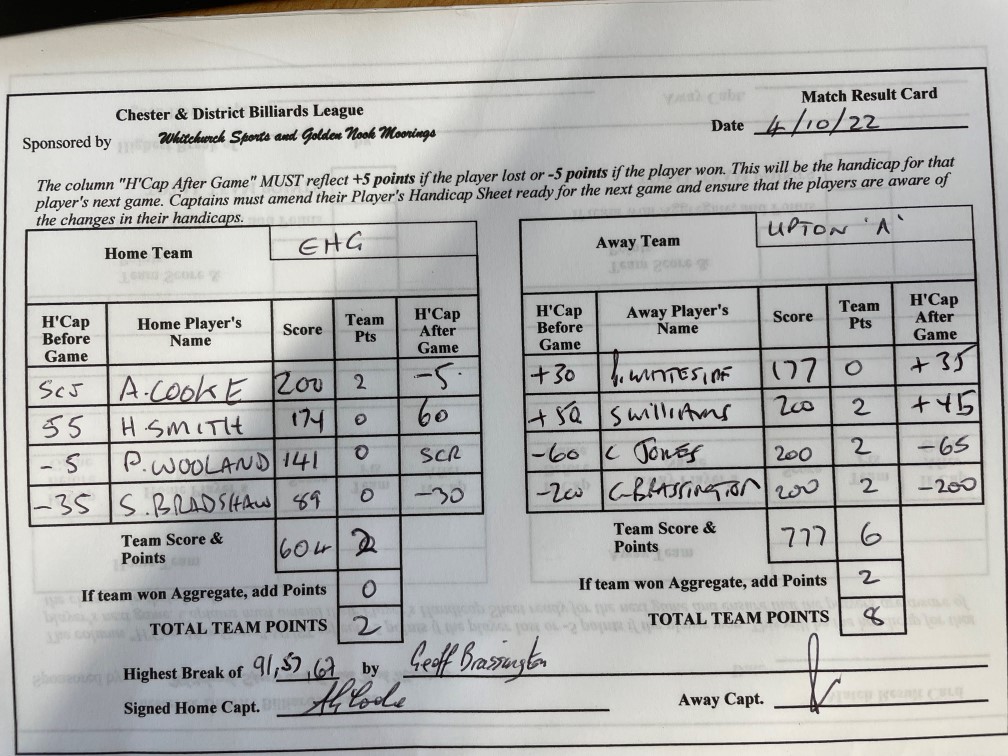 Chester & District Billiards League
Match Result Card
Sponsored by Whitchurch Sports and Golden Nook Moorings
Date 4/10/22
The column "H'Cap After Game" MUST reflect +5 points if the player lost or -5 points if the player won. This will be the handicap for that
player's next game. Captains must amend their Player's Handicap Sheet ready for the next game and ensure that the players are aware of
the changes in their handicaps.
Home Team EHG
H'Cap Before Game Home Player's Name Score Team Pts H'Cap After Game
A.COOKE 200 2 -5
55 H.SMITH 174 0 60
-5 P.WOOLAND 141 0 SCR
-35 S.BRADSHAW 89 0 -30
Team Score & Points 604 2
If team won Aggregate, add Points 0
TOTAL TEAM POINTS 2
Away Team UPTON 'A'
H'Cap Before Game Away Player's Name Score Team Pts H'Cap After Game
+30 WHITESIDE 177 0 +35
+50 S WILLIAMS 200 2 +45
-60 C JONES 200 2 -65
-200 G.BRASSINGTON 200 2 -200
Team Score & Points 777 6
If team won Aggregate, add Points 2
TOTAL TEAM POINTS 8
Highest Break of 91,57,67 by Geoff Brassington
Signed Home Capt.
Away Capt.